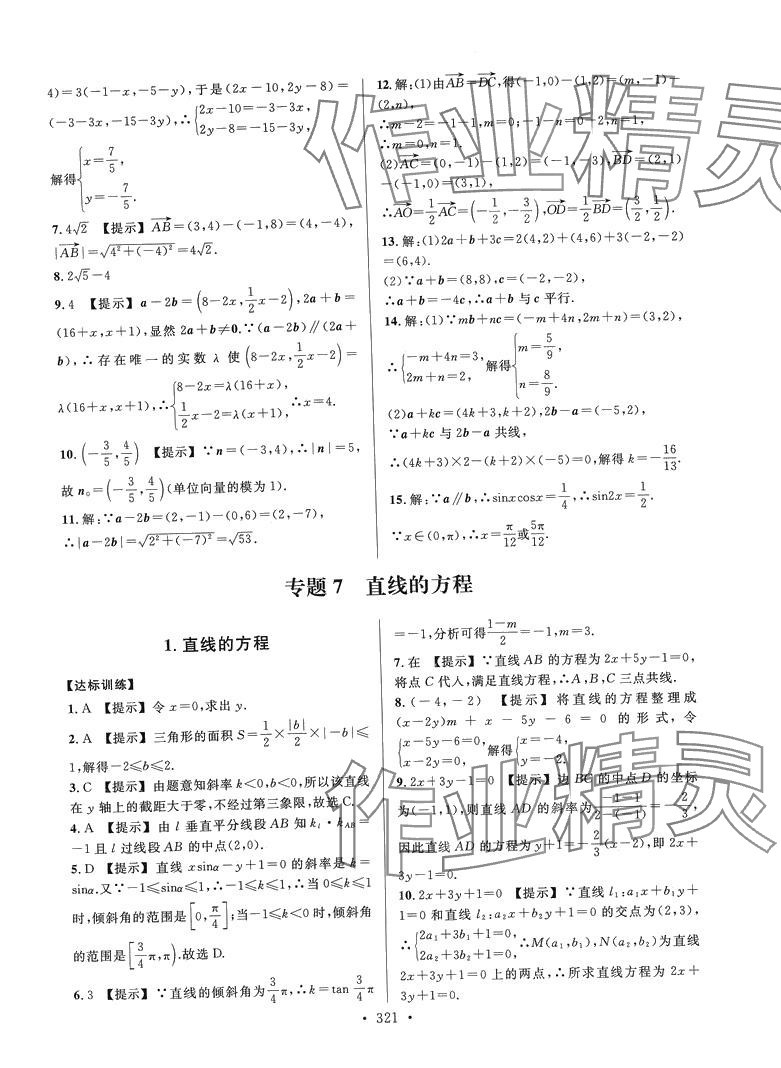 4)=3(-1-x,-5-y),于是(2x-10,2y-8)=
(-3-3x,-15-3y),∴{2x-10=-3-3x,
2y-8=-15-3y,
解得{x=7/5,
y=-7/5.
7.4√2 【提示】AB=(3,4)-(-1,8)=(4,-4),
|AB|=√4²+(-4)²=4√2.
8.2√5-4
9.4 【提示】a-2b=(8-2x,1/2x-2),2a+b=
(16+x,x+1),显然2a+b≠0.∵(a-2b)∥(2a+
b),∴存在唯一的实数λ使(8-2x,1/2x-2)=
λ(16+x,x+1),∴{8-2x=λ(16+x),
1/2x-2=λ(x+1),∴x=4.
10.(-3/5,4/5) 【提示】∵n=(-3,4),∴|n|=5,
故n₀=(-3/5,4/5)(单位向量的模为1).
11.解:∵a-2b=(2,-1)-(0,6)=(2,-7),
∴|a-2b|=√2²+(-7)²=√53.
12.解:(1)由AB=DC,得(-1,0)-(1,2)=(m,-1)-
(2,n),
∴m-2=-1-1,m=0;-1-n=0-2,n=1,
∴m=0,n=1.
(2)AC=(0,-1)-(1,2)=(-1,-3),BD=(2,1)
-(-1,0)=(3,1),
∴AO=1/2AC=(-1/2,-3/2),OD=1/2BD=(3/2,1/2).
13.解:(1)2a+b+3c=2(4,2)+(4,6)+3(-2,-2)
=(6,4).
(2)∵a+b=(8,8),c=(-2,-2),
∴a+b=-4c,∴a+b与c平行.
14.解:(1)∵mb+nc=(-m+4n,2m+n)=(3,2),
∴{-m+4n=3,
2m+n=2,解得{m=5/9,
n=8/9.
(2)a+kc=(4k+3,k+2),2b-a=(-5,2),
∵a+kc与2b-a共线,
∴(4k+3)×2-(k+2)×(-5)=0,解得k=-16/13.
15.解:∵a∥b,∴sinxcosx=1/4,∴sin2x=1/2.
∵x∈(0,π),∴x=π/12或5π/12.
专题7 直线的方程
1.直线的方程
【达标训练】
1.A 【提示】令x=0,求出y.
2.A 【提示】三角形的面积S=1/2×|b|/2×|-b|≤
1,解得-2≤b≤2.
3.C 【提示】由题意知斜率k<0,b<0,所以该直线
在y轴上的截距大于零,不经过第三象限,故选C.
4.A 【提示】由l垂直平分线段AB知kₗ·kAB=
-1且l过线段AB的中点(2,0).
5.D 【提示】直线xsinα-y+1=0的斜率是k=
sinα.又∵-1≤sinα≤1,∴-1≤k≤1,∴当0≤k≤1
时,倾斜角的范围是[0,π/4];当-1≤k<0时,倾斜角
的范围是[3/4π,π).故选D.
6.3 【提示】∵直线的倾斜角为3/4π,∴k=tan3/4π
=-1,分析可得1-m/2=-1,m=3.
7.在 【提示】∵直线AB的方程为2x+5y-1=0,
将点C代人,满足直线方程,∴A,B,C三点共线.
8.(-4,-2) 【提示】将直线的方程整理成
(x-2y)m+x-5y-6=0的形式,令
{x-5y-6=0,
x-2y=0,解得{x=-4,
y=-2.
9.2x+3y-1=0 【提示】边BC的中点D的坐标
为(-1,1),则直线AD的斜率为-1-1/2-(-1)=-2/3,
因此直线AD的方程为y+1=-2/3(x-2),即2x+
3y-1=0.
10.2x+3y+1=0 【提示】∵直线l₁:a₁x+b₁y+
1=0和直线l₂:a₂x+b₂y+1=0的交点为(2,3),
∴{2a₁+3b₁+1=0,
2a₂+3b₂+1=0,∴M(a₁,b₁),N(a₂,b₂)为直线
2x+3y+1=0上的两点,∴所求直线方程为2x+
3y+1=0.
·321·
作业精灵
作业精灵